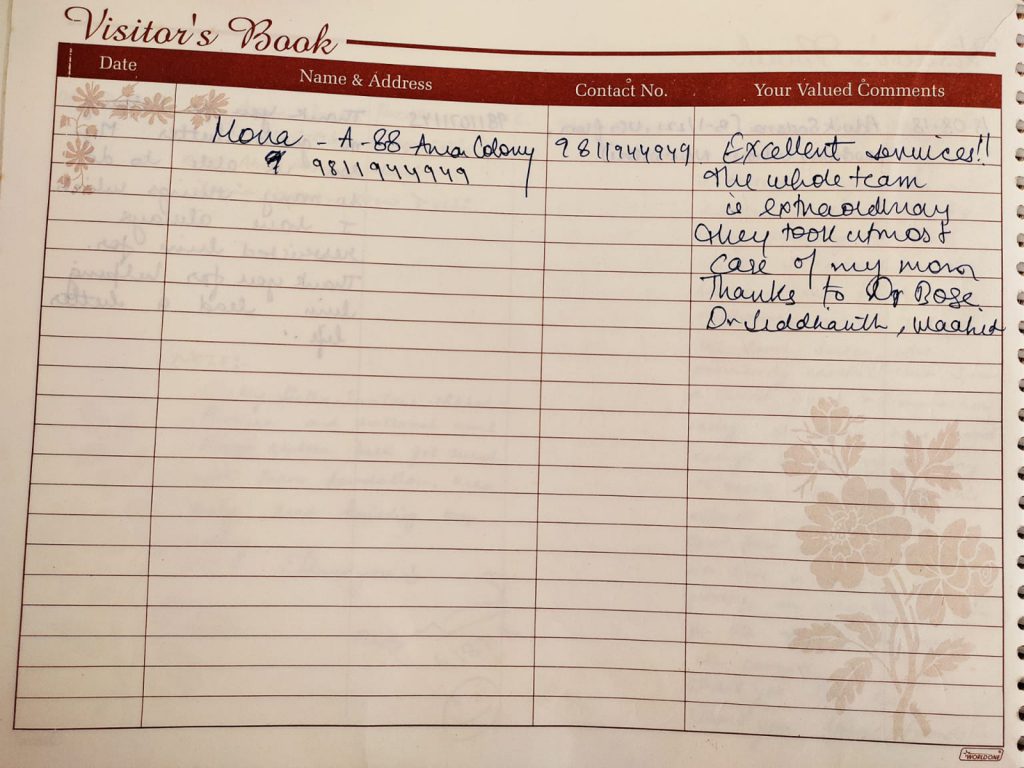 Visitor's Book
Date Name & Address Contact No. Your Valued Comments
Mona - A-88 Colony 9811944949 Excellent services!!
9811944949 The whole team
is extraordinary
They took utmost
care of my mom
Thanks to Dr Bose
Dr Siddhanth, Waahid
WORLDONE